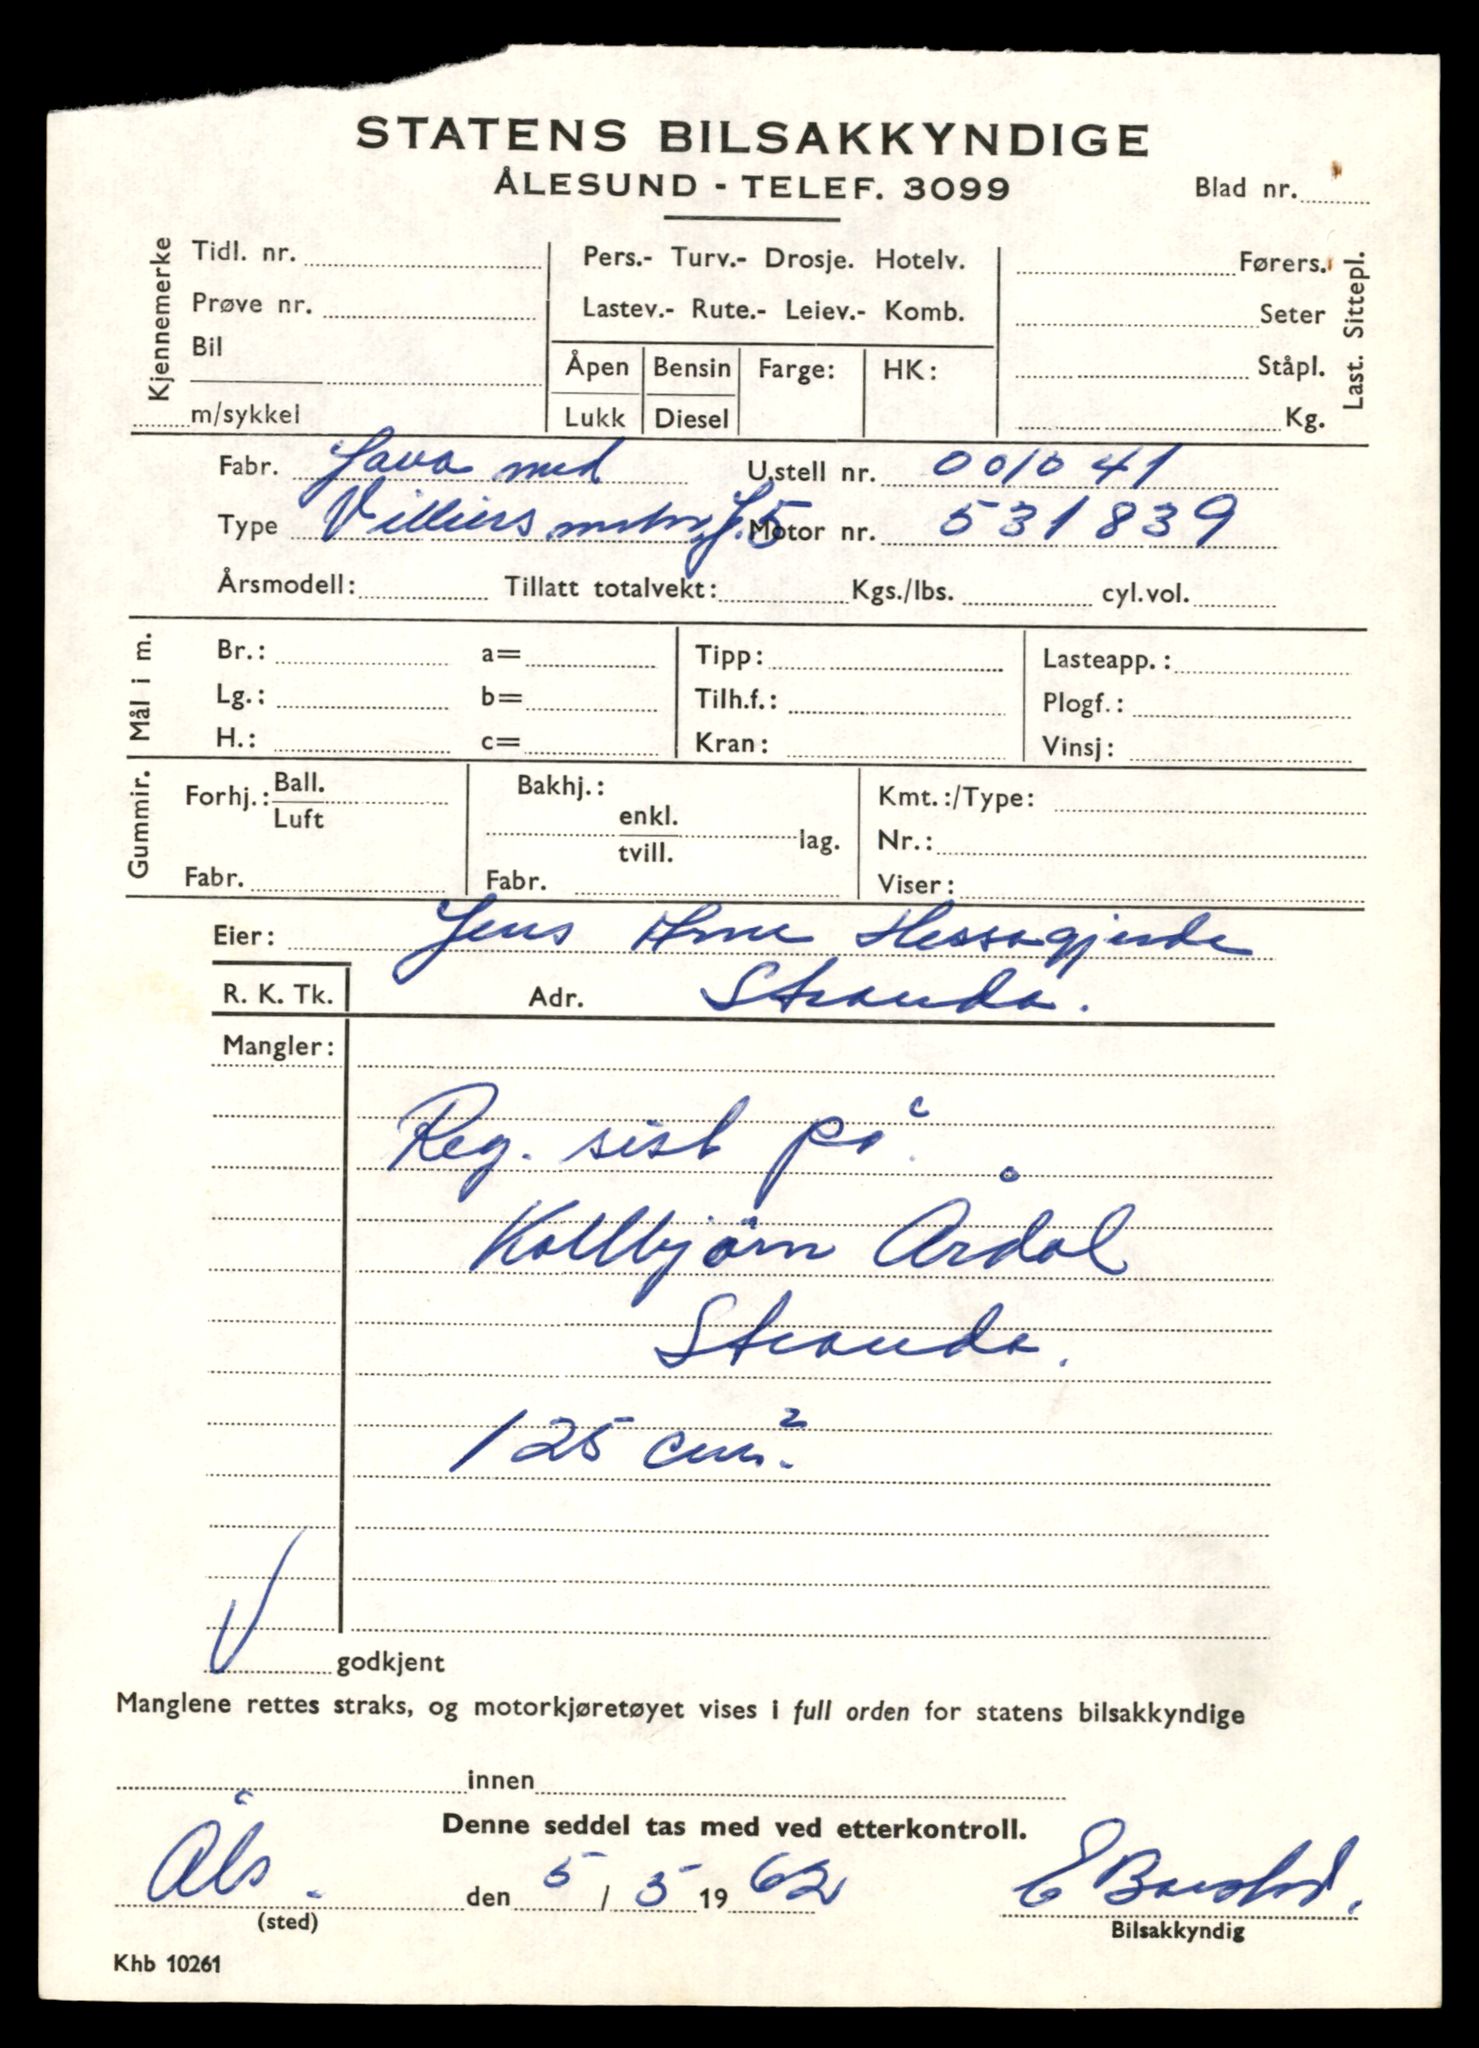 STATENS BILSAKKYNDIGE
ÅLESUND - TELEF. 3099
Blad nr.
Kjennemerke
Tidl. nr.
Prøve nr.
Bil
m/sykkel
Pers.- Turv.- Drosje. Hotelv.
Lastev.- Rute.- Leiev.- Komb.
Åpen Bensin Farge: HK:
Lukk Diesel
Førers.
Seter
Ståpl.
Kg.
Last. Sittepl.
Fabr. Java med U.stell nr. 001041
Type Villiers motor, J.5 Motor nr. 531839
Årsmodell: Tillatt totalvekt: Kgs./lbs. cyl.vol.
Mål i m.
Br.: a= Tipp: Lasteapp.:
Lg.: b= Tilh.f.: Plogf.:
H.: c= Kran: Vinsj:
Gummir.
Forhj.: Ball. Bakhj.: Kmt.:/Type:
Luft enkl. lag. Nr.:
tvill.
Fabr. Fabr. Viser:
Eier: Jens Arne Hessegjerde
R. K. Tk. Adr. Stranda.
Mangler:
Reg. sist på
Kolbjörn Årdal
Stranda.
125 cm².
√ godkjent
Manglene rettes straks, og motorkjøretøyet vises i full orden for statens bilsakkyndige
innen
Denne seddel tas med ved etterkontroll.
Åls. den 5/5 1962
(sted) Bilsakkyndig
Khb 10261